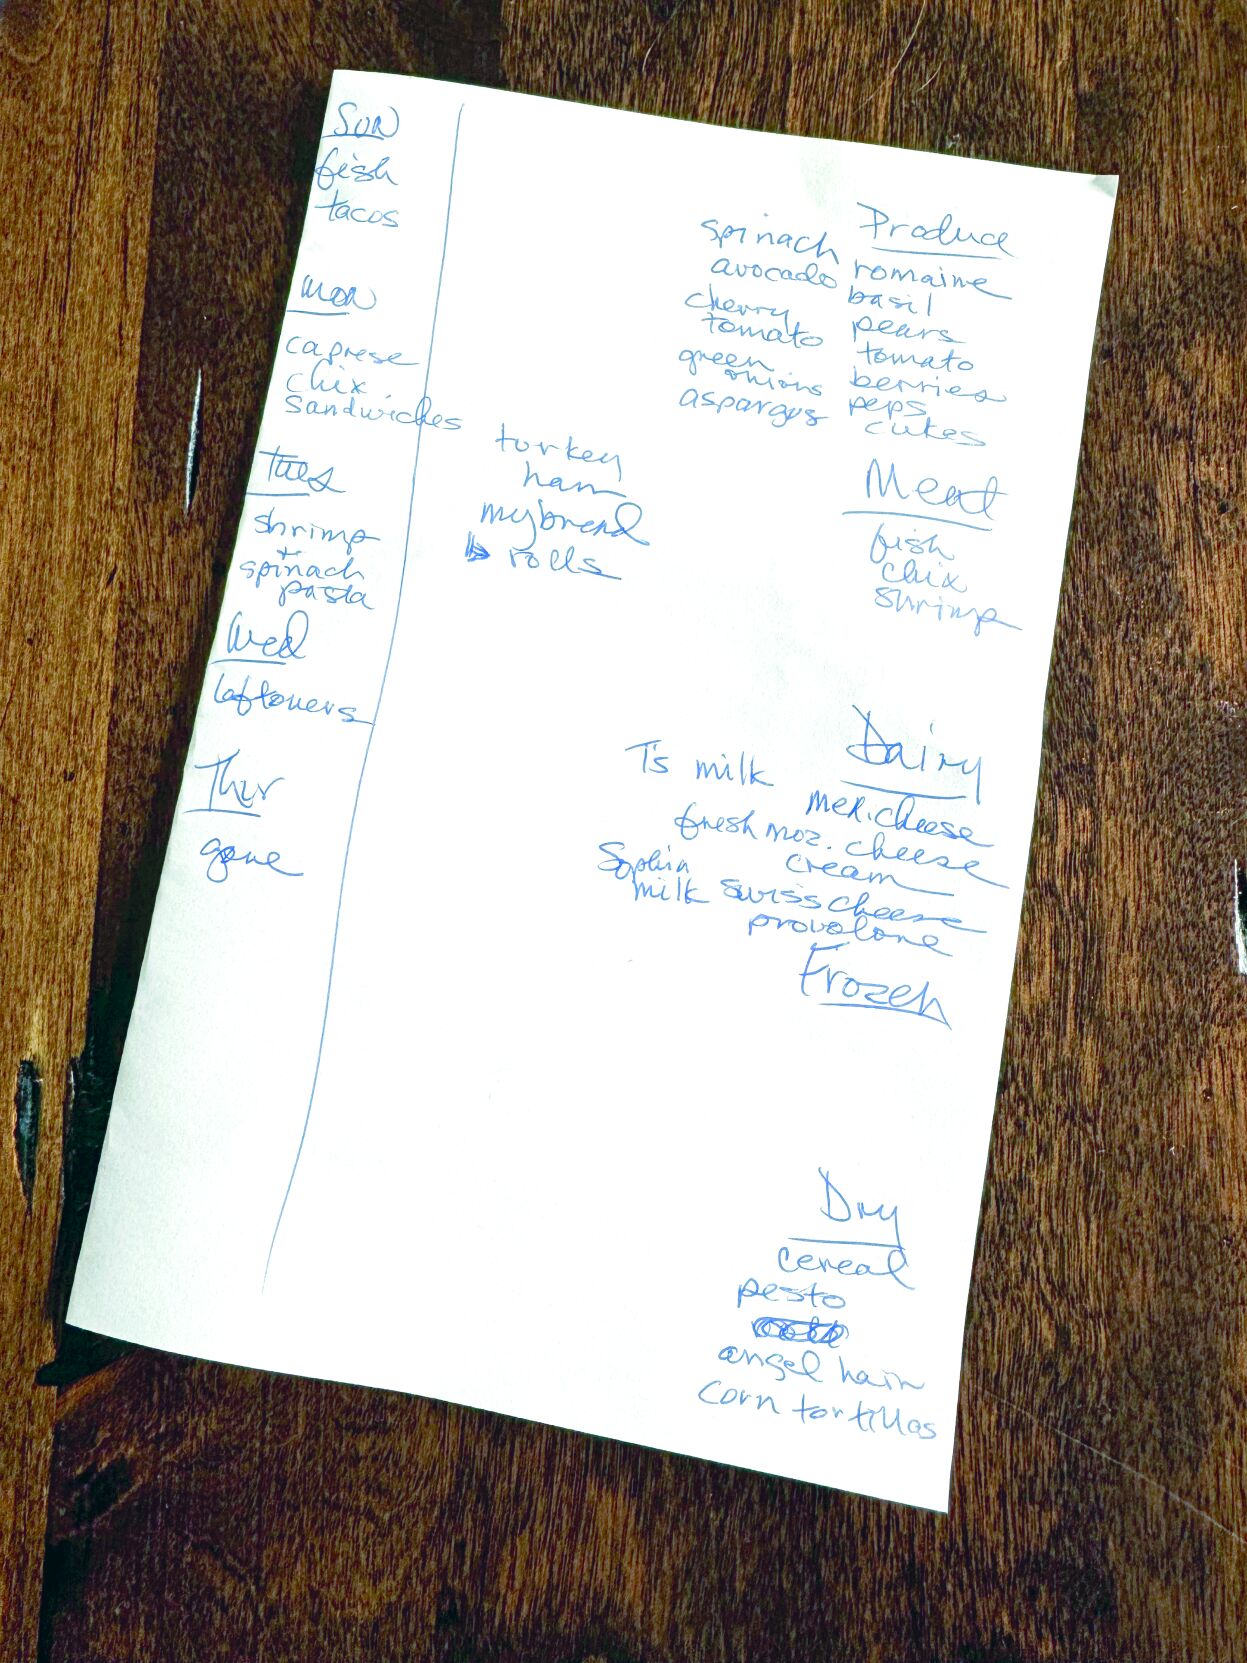 Sun
fish
tacos
Mon
caprese
chix
sandwiches
Tues
shrimp
+
spinach
pasta
Wed
leftovers
Thur
gone
turkey
ham
my bread
rolls
Produce
spinach
avocado romaine
basil
cherry
tomato pears
tomato
green
onions berries
aspargus peps
cukes
Meat
fish
chix
shrimp
Dairy
T's milk
mex. cheese
fresh moz. cheese
Sophia cream
milk swiss cheese
provolone
Frozen
Dry
cereal
pesto
angel hair
corn tortillas